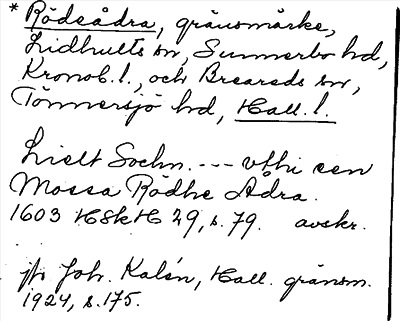 * Rödeådra, gränsmärke,
Lidhults sn, Sunnerbo hd,
Kronob. l., och Breareds sn,
Tönnersjö hd, Hall. l.
Lielt Sochn. --- vthi een
Mossa Rödhe Ådra.
1603 HSkH 29, s. 79. avskr.
jfr Joh. Kalén, Hall. gränsm.
1924, s. 175.